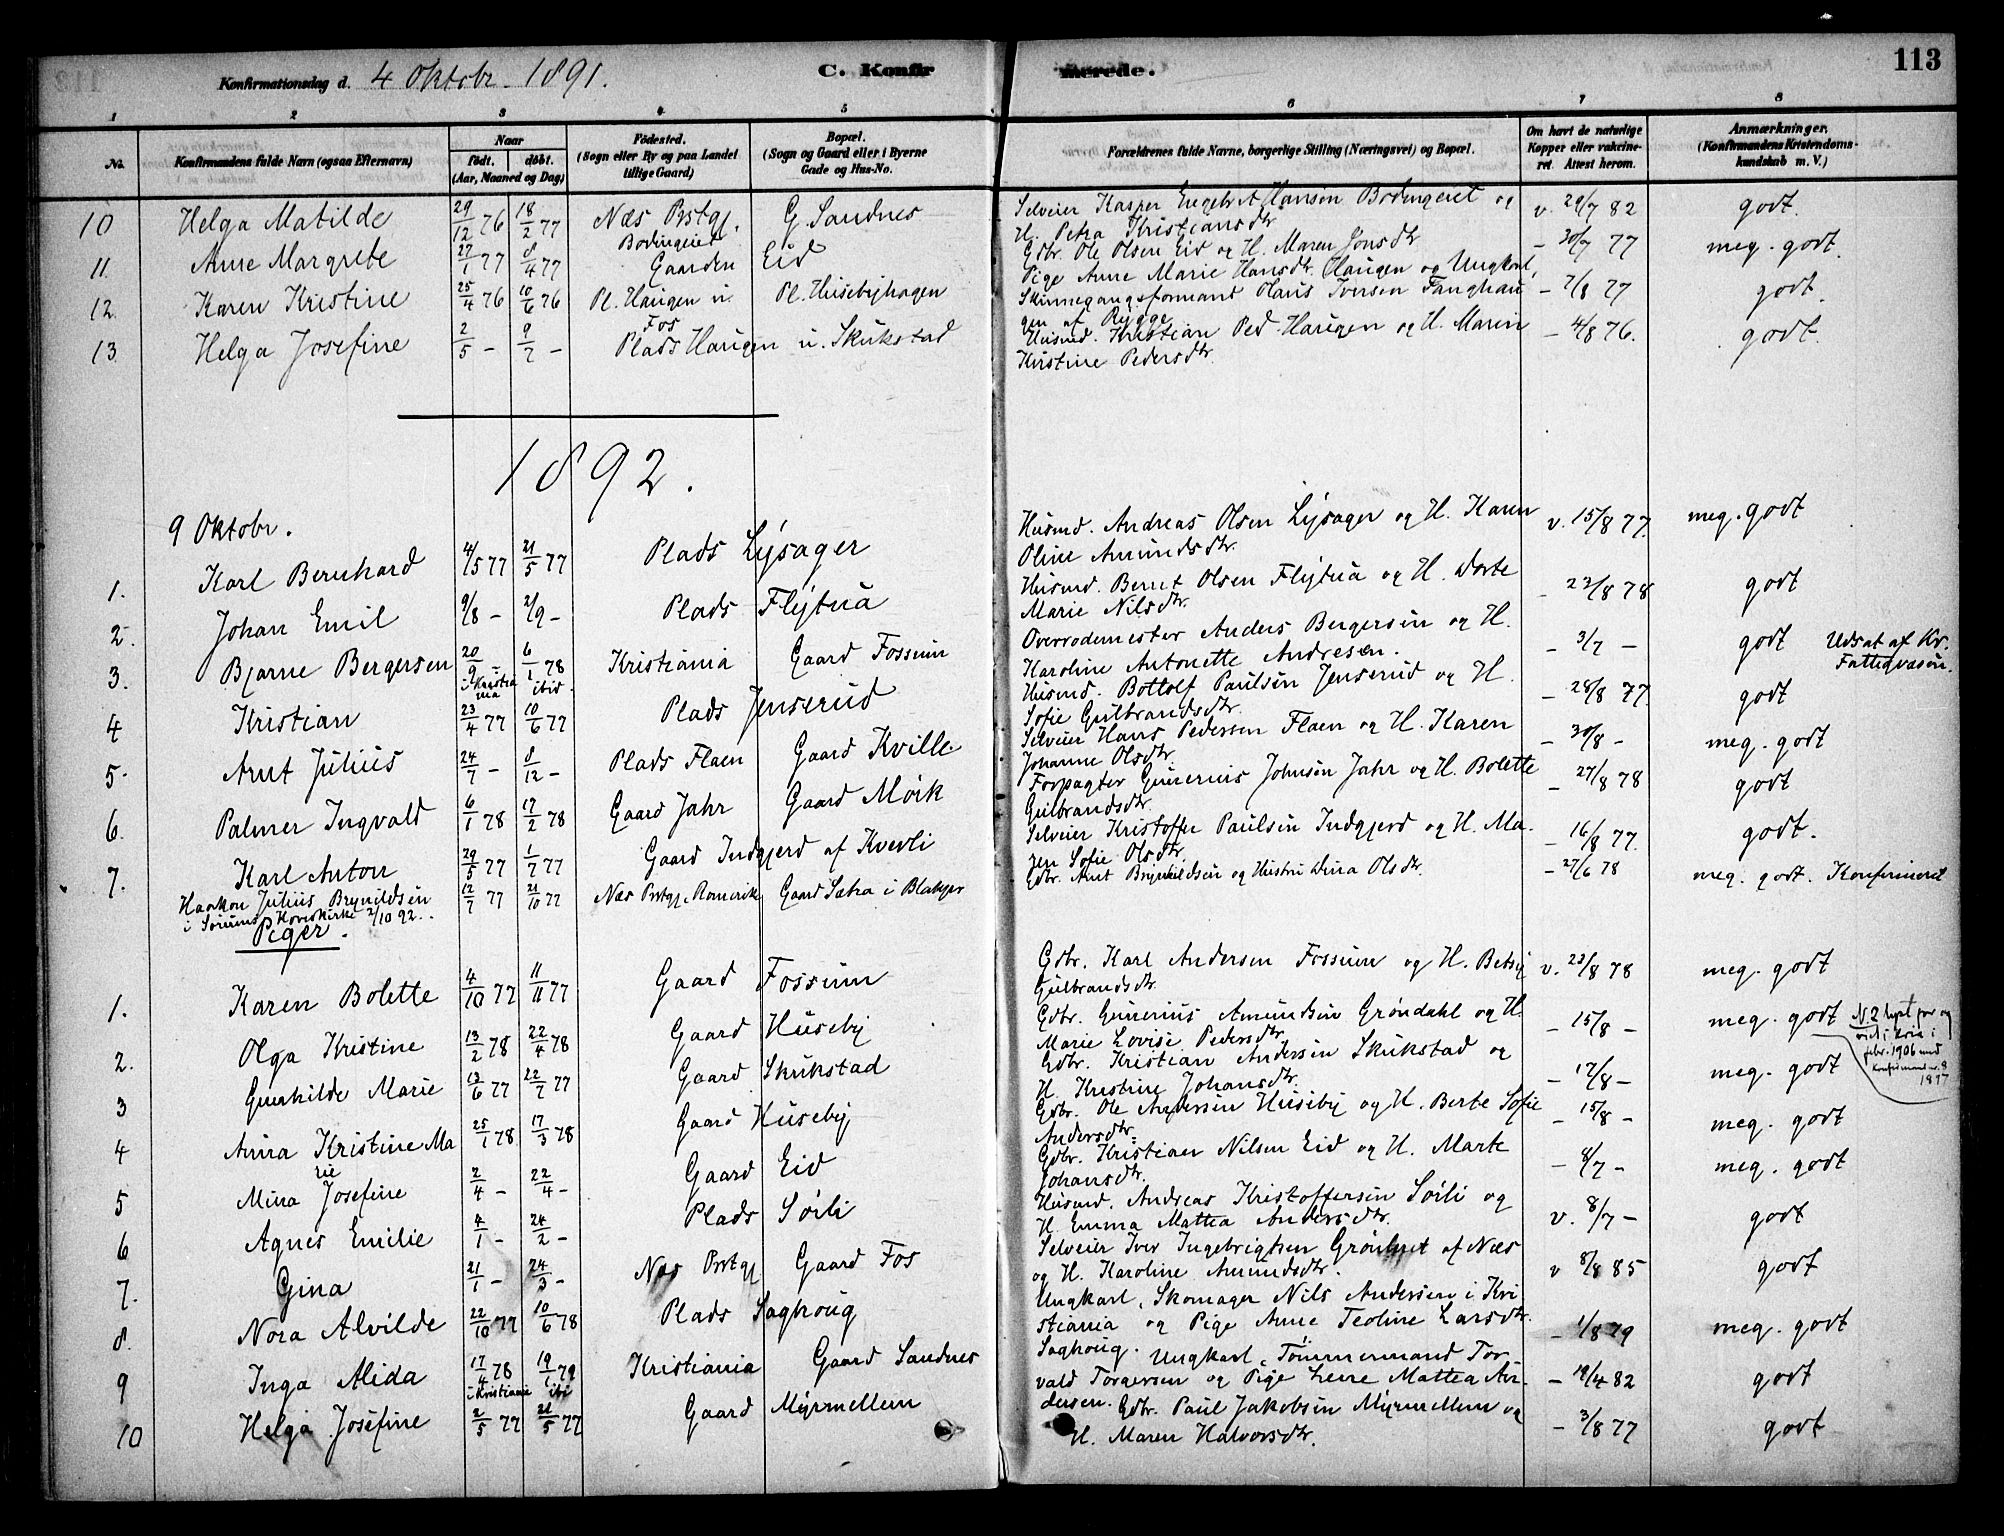 113
Konfirmationsdag d. 4 Oktobr. 1891.
C. Konfirmerede.
1 2 3 4 5 6 7 8
No. Konfirmandens fulde Navn (ogsaa Efternavn) Naar født. døbt. (Aar, Maaned og Dag) Födested. (Sogn eller By og paa Landet tillige Gaard) Bopæl. (Sogn og Gaard eller i Byerne Gade og Hus-No. Forældrenes fulde Navne, borgerlige Stilling (Næringsvei) og Bopæl. Om havt de naturlige Kopper eller vakcineret. Attest herom. Anmærkninger. (Konfirmandens Kristendomskundskab m. V.)
10 Helga Matilde 29/12 76 18/2 77 Næs Prstgj. G. Sandnes Selveier Kasper Engebret Hansen Bodingeiet og v. 29/7 82 godt.
H. Petra Kristiansdtr.
11. Anne Margrete 27/1 77 8/4 77 Gaarden Eid Gdbr. Ole Olsen Eid og H. Maren Jonsdtr – 30/7 77 meg. godt.
12. Karen Kristine 25/4 76 10/6 76 Pl. Haugen u. Fos Pl. Husebyhagen Pige Anne Marie Hansdtr. Haugen og Ungkarl,
Skinnegangsformand Olaus Iversen Tanghaugen af Rygge – 7/8 77 godt.
13. Helga Josefine 2/5 – 9/7 – Plads Haugen u. Skukstad Husmd. Kristian Ped. Haugen og H. Marin – 4/8 76. godt.
Kristine Pedersdtr
1892.
9 Oktobr.
1. Karl Bernhard 4/5 77 21/5 77 Plads Lysager Husmd. Andreas Olsen Lysager og H. Karen v. 15/8 77. meg. godt
Oline Amundsdtr.
2. Johan Emil 9/8 – 2/9 – Plads Flytua Husmd. Bernt Olsen Flytua og H. Dorte – 23/8 78 godt
Marie Nilsdtr.
3. Bjarne Bergersen 20/9 – i Kristiania 6/1 78 ibid. Kristiania Gaard Fossum Overrodemester Anders Bergersen og H. – 3/7 – godt Udsat af Kr. Fattigvæsen.
Karoline Antonette Andresen.
4 Kristian 23/4 77 10/6 77 Plads Jenserud Husmd. Bottolf Paulsen Jenserud og H. – 28/8 77. godt
Sofie Gulbrandsdtr.
5. Arnt Julius 24/7 – 8/12 – Plads Flaen Gaard Kville Selveier Hans Pedersen Flaen og H. Karen – 30/8 – meg. godt
Johanne Olsdtr.
6. Palmer Ingvald 6/1 78 17/2 78 Gaard Jahr Gaard Mørk Forpagter Gunerius Johnsen Jahr og H. Bolette – 27/8 78 godt
Gulbrandsdtr.
7. Karl Anton 29/5 77 1/7 77 Gaard Indgjerd af Kverli Selveier Kristoffer Paulsen Indgjerd og H. Ma- – 16/8 77. godt.
ren Sofie Olsdtr.
Haakon Julius Brynildsen 12/7 77 21/10 77 Næs Prstgj. Romerike Gaard Sætra i Blakjer Gdbr. Arnt Brynhildsen og Hustru Dina Olsdtr. – 27/6 78 meg. godt. Konfirmeret
i Sørums Hovedkirke 2/10 92.
Piger.
1. Karen Bolette 4/10 77 11/11 77 Gaard Fossum Gdbr. Karl Andersen Fossum og H. Betsy v. 23/8 78 meg. godt
Gulbrandsdtr.
2. Olga Kristine 13/2 78 22/4 78 Gaard Huseby Gdbr. Gunerius Amundsen Grøndahl og H. – 15/8 – meg. godt N. 2 lyst for og viet i Kria i febr. 1906 med Konfirmand nr. 8 1877
Marie Lovise Pedersdtr.
3 Gunhilde Marie 13/6 77 22/7 77 Gaard Skukstad Gdbr. Kristian Andersen Skukstad og – 17/8 – meg. godt
H. Kristine Johansdtr.
4 Anna Kristine Marie 25/1 78 17/3 78 Gaard Huseby Gdbr. Ole Andersen Huseby og H. Berte Sofie – 15/8 – meg. godt
Andersdtr.
5 Mina Josefine 2/4 – 22/4 – Gaard Eid Gdbr. Kristian Nilsen Eid og H. Marte – 8/7 – meg. godt
Johansdtr.
6 Agnes Emilie 4/1 – 24/2 – Plads Søili Husmd. Andreas Kristoffersen Søili og v. 8/7 – godt
H. Emma Mattea Andersdtr.
7. Gina 21/1 – 24/3 – Næs Prstgj Gaard Fos Selveier Iver Ingebrigtsen af Næs v 8/8 85 godt
og H. Karoline Amundsdtr.
8. Nora Alvilde 22/10 77 10/6 78 Plads Saghoug Ungkarl, Skomager Nils Andersen i Kri- – 1/8 79 meg. godt
stiania og Pige Anne Teoline Larsdtr.
Saghoug.
9 Inga Alida 17/4 78 i Kristiania 19/1 79 ibi Kristiania Gaard Sandnes Ungkarl, Tømmermand Tor- – 19/4 82 godt
vald Torgersen og Pige Lene Mattea An-
dersen.
10 Helga Josefine 2/5 77 21/5 77 Gaard Myrmellem Gdbr. Paul Jakobsen Myrmellem og – 3/8 77 godt
H. Maren Halvorsdtr.